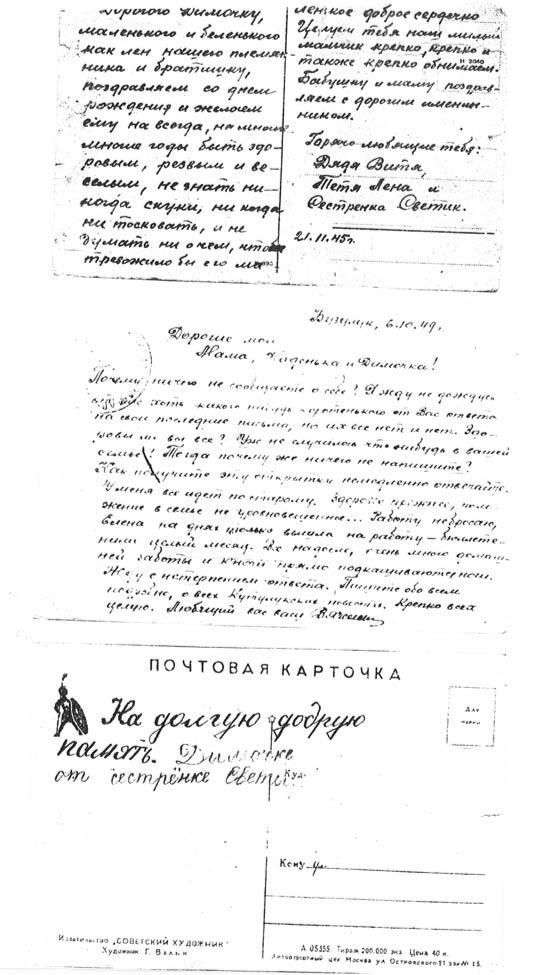 Дорогого Димочку,
маленького и беленького
как лен нашего племян-
ника и братишку,
поздравляем со днем
рождения и желаем
ему на всегда, на многие
многие годы быть здо-
ровым, резвым и ве-
селым, не знать ни-
когда скуки, ни когда
ни тосковать, и не
думать ни о чем, что
тревожило бы его ма
ленькое доброе сердечко
Целуем тебя наш милый
мальчик крепко, крепко и
также крепко обнимаем.
Бабушку и маму поздрав-
ляем с дорогим именин-
ником.
Горячо любящие тебя:
Дядя Витя,
Тетя Лена и
Сестренка Светик.
21.11.45г.
Бузулук, 6.10.49г.
Дорогие мои
Мама, и Димочка!
Почему ничего не сообщаете о себе? Я жду не дождусь
хоть какого нибудь от Вас ответа
на свои последние письма, но их все нет и нет. Здо-
ровы ли вы все? Уж не случилось что нибудь в вашей
семье? Тогда почему же ничего не напишите?
Как получите эту открытку немедленно отвечайте.
У меня все идет по старому. Здоровье прежнее, поло-
жение в семье не уравновешенное... Работу не бросаю,
Елена на днях только вышла на работу – бюллете-
нила целый месяц. очень много домаш-
ней работы и прямо подкашиваются ноги.
Жду с нетерпением ответа. Пишите обо всем
о всех новости. Крепко всех
целую. Любящий вас ваш
ПОЧТОВАЯ КАРТОЧКА
Для
марки
На долгую добрую
память. Димочке
от сестрёнке Свети
Куда
Кому
Издательство „СОВЕТСКИЙ ХУДОЖНИК"
Художник Г. Вальк
А 05355 Тираж 200.000 экз Цена 40 к.
Литографный цех Москва ул Островского